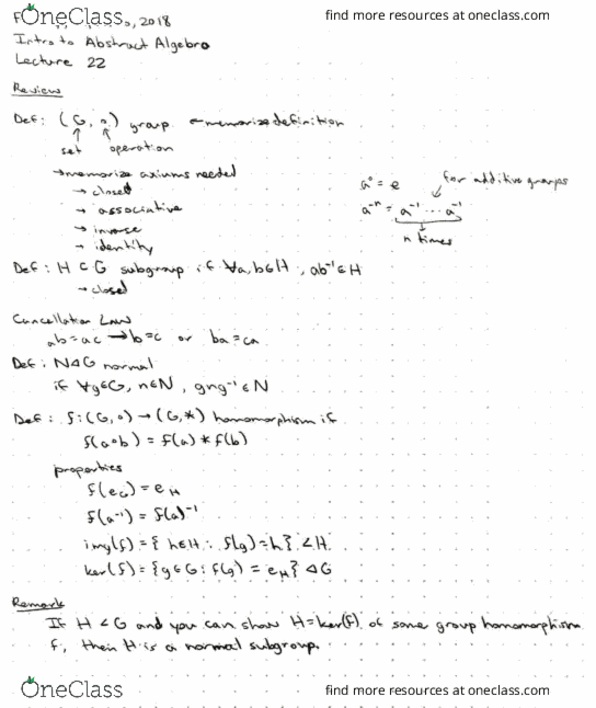 OneClass find more resources at oneclass.com
F , 2018
Intro to Abstract Algebra
Lecture 22
Review
Def: (G, ∘) group ← memorize definition
↑ ↑
set operation
→ memorize axiums needed
→ closed
→ associative
→ inverse
→ identity
a⁰ = e for additive groups
a⁻ⁿ = a⁻¹ ... a⁻¹
n times
Def: H ⊂ G subgroup if ∀a,b∈H, ab⁻¹∈H
→ closed
Cancellation Law
ab=ac → b=c or ba=ca
Def: N⊲G normal
if ∀g∈G, n∈N, gng⁻¹∈N
Def: f:(G,∘)→(G,*) homomorphism if
f(a∘b) = f(a) * f(b)
properties
f(e_G) = e_H
f(a⁻¹) = f(a)⁻¹
img(f) = { h∈H : f(g)=h} < H
ker(f) = {g∈G : f(g) = e_H} ⊲ G
Remark
If H < G and you can show H=ker(f) of some group homomorphism
f, then H is a normal subgroup.
OneClass find more resources at oneclass.com